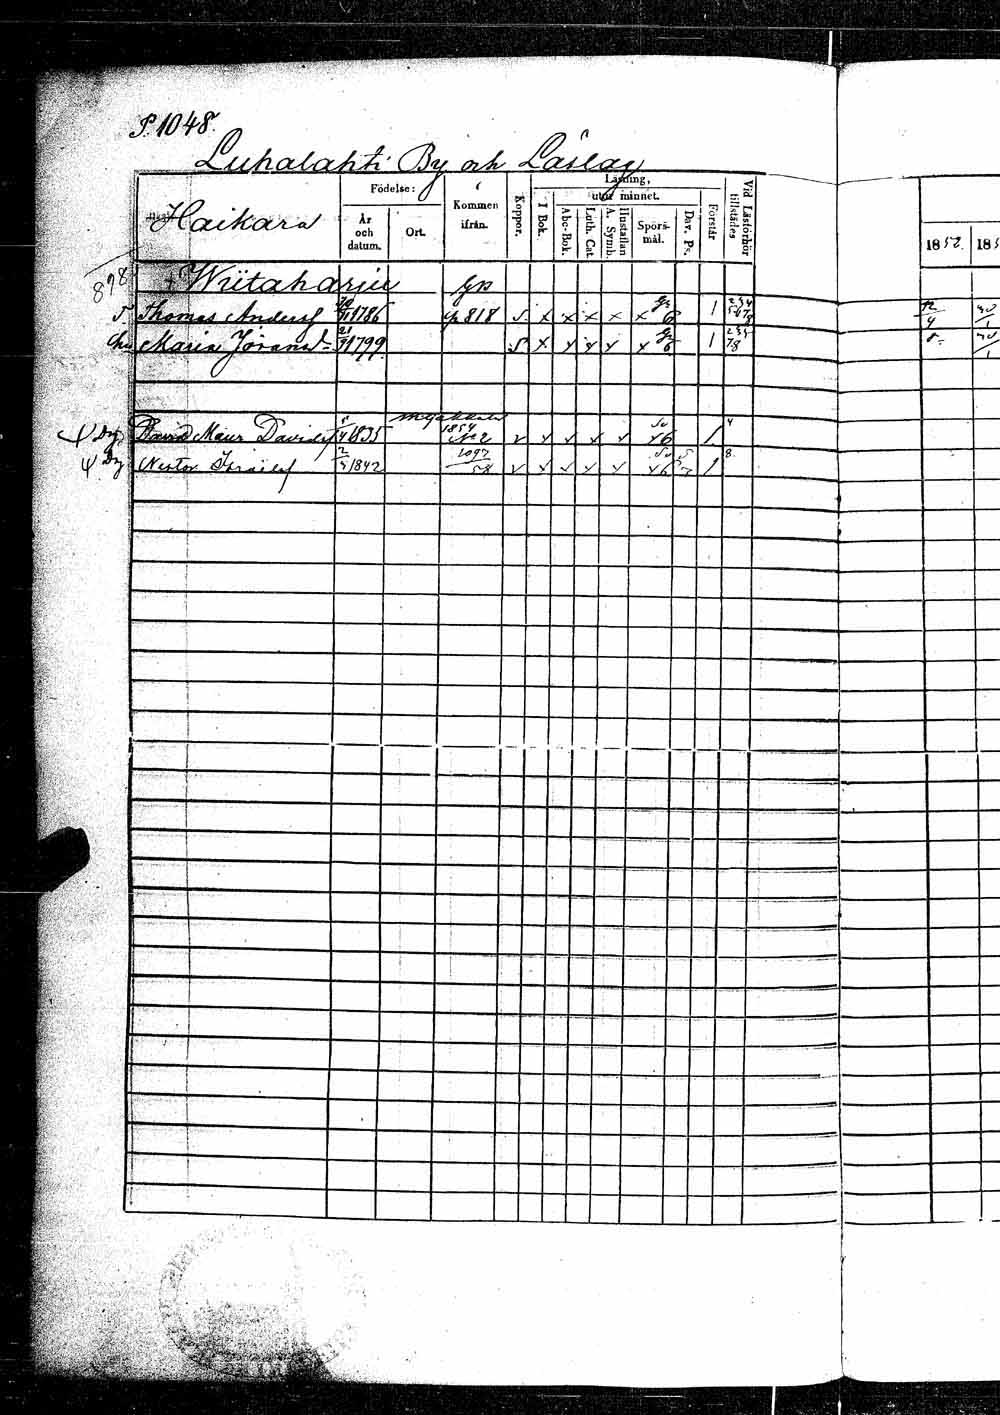 P. 1048.
Luhalahti By och Läslag
Haikara
Födelse:
År och datum.
Ort.
Kommen ifrån.
Koppor.
Läsning,
utur minnet.
I Bok.
Abc-Bok.
Luth. Cat
A. Symb.
Hustaflan
Spörs-mål.
Dav. Ps.
Förstår
Vid Läsförhör tillstädes
1852.
185
878
Wiitaharju
Thomas Andersf 1786 p 818 S x x x x x 6 1
Maria Jöransd 21 1799 S x x x x x 6 1
David Maur Davidsf 1835 1854 No 2 v x x x x x6 1 4
Nestor Israelsf 2/4 1842 1097/58 v x x x x x6 1 8.